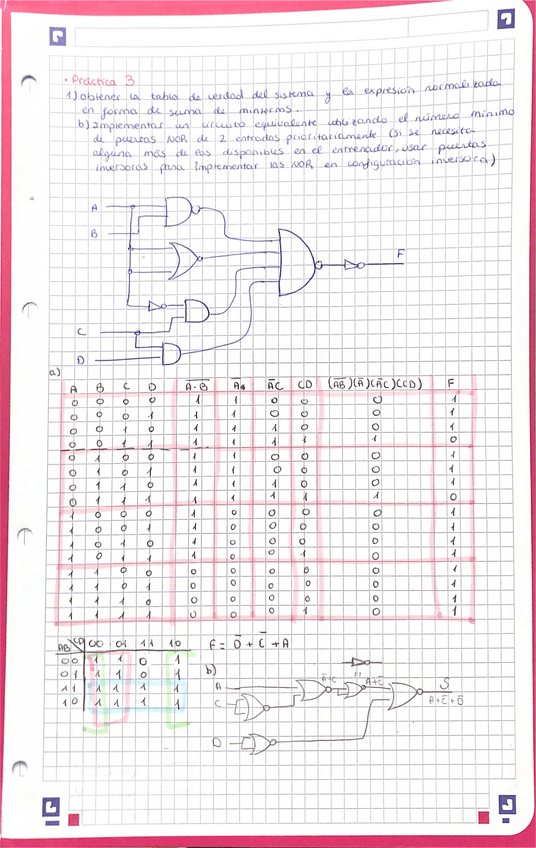 • Práctica 3
1) Obtener la tabla de verdad del sistema y la expresión normalizada
en forma de suma de minterms.
b) Implementar un circuito equivalente utilizando el número mínimo
de puertas NOR de 2 entradas prioritariamente (si se necesita
alguna más de las disponibles en el entrenador, usar puertas
inversoras para implementar las NOR en configuración inversora)
A
B
C
D
F
a)
A B C D A̅·̅B̅ A̅ A̅C CD (A̅B̅)(A̅)(A̅C)(CD) F
0 0 0 0 1 1 0 0 0 1
0 0 0 1 1 1 0 0 0 1
0 0 1 0 1 1 1 0 0 1
0 0 1 1 1 1 1 1 1 0
0 1 0 0 1 1 0 0 0 1
0 1 0 1 1 1 0 0 0 1
0 1 1 0 1 1 1 0 0 1
0 1 1 1 1 1 1 1 1 0
1 0 0 0 1 0 0 0 0 1
1 0 0 1 1 0 0 0 0 1
1 0 1 0 1 0 0 0 0 1
1 0 1 1 1 0 0 1 0 1
1 1 0 0 0 0 0 0 0 1
1 1 0 1 0 0 0 0 0 1
1 1 1 0 0 0 0 0 0 1
1 1 1 1 0 0 0 1 0 1
AB CD 00 01 11 10
00 1 1 0 1
01 1 1 0 1
11 1 1 1 1
10 1 1 1 1
F = D̅ + C̅ + A
b)
A
C
D
A̅+̅C̅
A+C̅
S
A+C̅+D̅